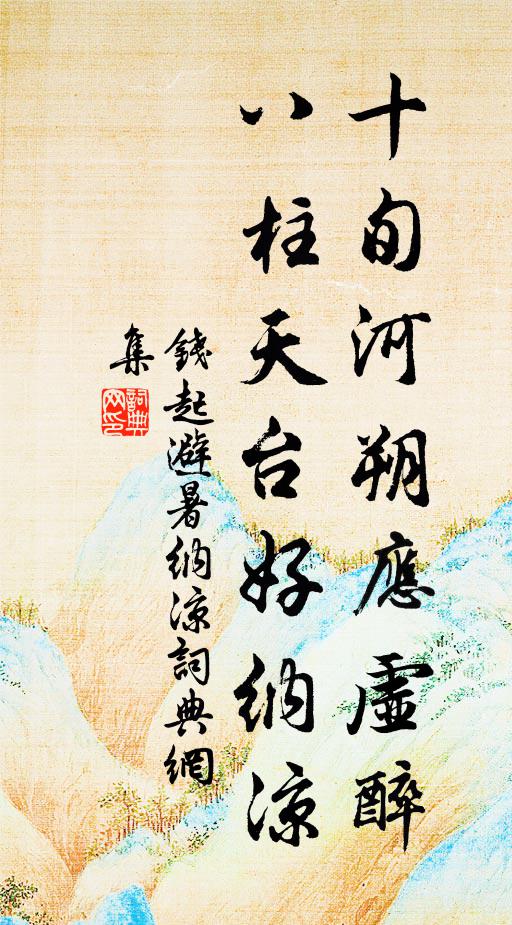 十旬河朔應虛醉
八柱天台好納涼
錢起避暑納涼詞典網
集
詞典
网印